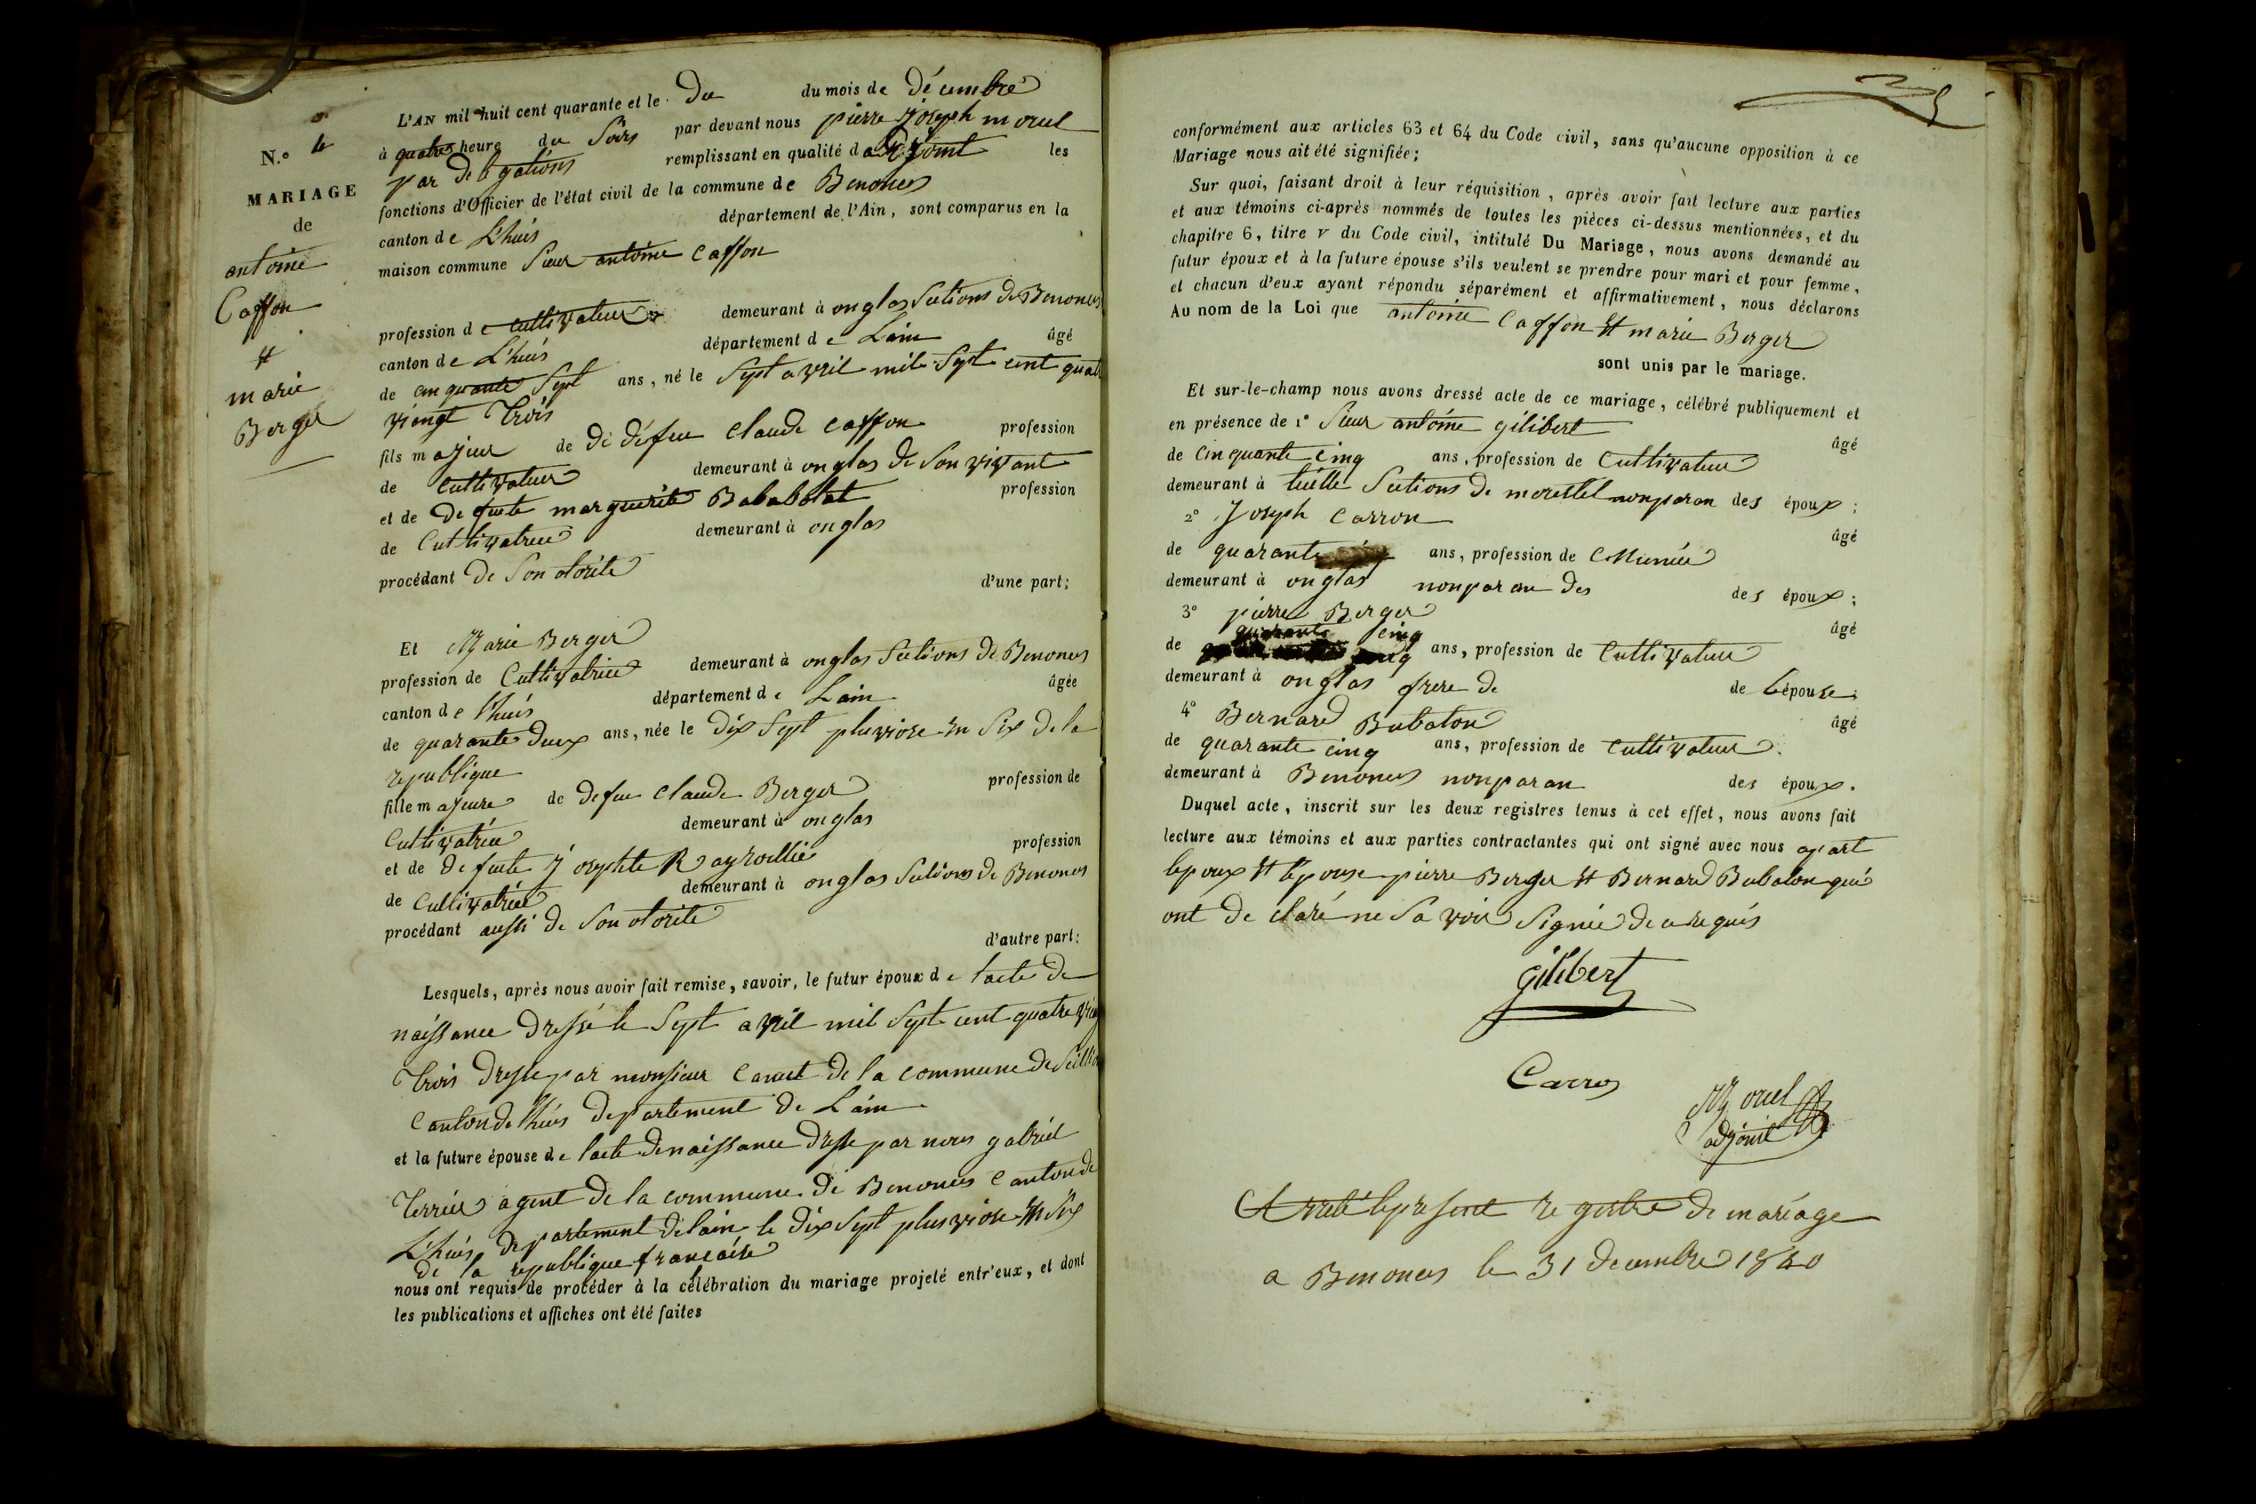 N.° 4
MARIAGE
de
antoine
Caffon
et
marie
Berger
L'AN mil huit cent quarante et le du mois de décembre
à quatre heure du Soirs par devant nous pierre joseph morel
par delegations remplissant en qualité d adjoint les
fonctions d'Officier de l'état civil de la commune de Benonces
canton de L'huis département de l'Ain, sont comparus en la
maison commune Sieur antoine Caffon
profession de cultivateur demeurant à onglas Sections de Benonces
canton de L'huis département de Lain âgé
de cinquante Sept ans, né le Sept avril mile Sept cent quatre
viengt Trois
fils majeur de de défeu claude caffon profession
de cultivateur demeurant à onglas de Son vivant
et de defuete marguerite profession
de Cultivatrice demeurant à onglas
procédant de Son otorite
d'une part;
Et Marie Berger
profession de Cultivatrice demeurant à onglas Sections de Benonces
canton de l'huis département de Lain âgée
de quarante deux ans, née le dix Sept pluviose en Six de la
republique
fille majeure de defeu claude Berger profession de
Cultivatrice demeurant à onglas
et de defuete josephte profession
de cultivatrice demeurant à onglas Sections de Benonces
procédant aussi de Son otorite
d'autre part:
Lesquels, après nous avoir fait remise, savoir, le futur époux de lacte de
naissance dressé le Sept avril mil Sept cent quatre
Trois dresse par monsieur de la commune de
canton de l'huis departement de Lain
et la future épouse de lacte denaissance dresse par nous gabriel
agent de la commune de Benonces canton de
L'huis departement delain le dix Sept pluviose en Six
de la republique francaise
nous ont requis de procéder à la célébration du mariage projeté entr'eux, et dont
les publications et affiches ont été faites
conformément aux articles 63 et 64 du Code civil, sans qu'aucune opposition à ce
Mariage nous ait été signifiée;
Sur quoi, faisant droit à leur réquisition, après avoir fait lecture aux parties
et aux témoins ci-après nommés de toutes les pièces ci-dessus mentionnées, et du
chapitre 6, titre v du Code civil, intitulé Du Mariage, nous avons demandé au
futur époux et à la future épouse s'ils veulent se prendre pour mari et pour femme,
et chacun d'eux ayant répondu séparément et affirmativement, nous déclarons
Au nom de la Loi que antoine Caffon et marie Berger
sont unis par le mariage.
Et sur-le-champ nous avons dressé acte de ce mariage, célébré publiquement et
en présence de 1° Sieur antoine gilibert
de Cinquante cinq ans, profession de Cultivateur âgé
demeurant à Sections de morestel nonparan des époux;
2° Joseph Carron
de quarante ans, profession de âgé
demeurant à onglas nonparan des des époux;
3° pierre Berger
de quarante cinq ans, profession de Cultivateur âgé
demeurant à onglas frere de de Lépouse;
4° Bernard Babolon
de quarante cinq ans, profession de cultivateur âgé
demeurant à Benonces nonparan des époux.
Duquel acte, inscrit sur les deux registres tenus à cet effet, nous avons fait
lecture aux témoins et aux parties contractantes qui ont signé avec nous apart
lepoux et lepouse pierre Berger et Bernard Babolon qui
ont de claré ne Savoir Signée de ce requis
gilibert
Carron
Morel
adjoint
Areté lepresent registre de mariage
a Benonces le 31 decembre 1840